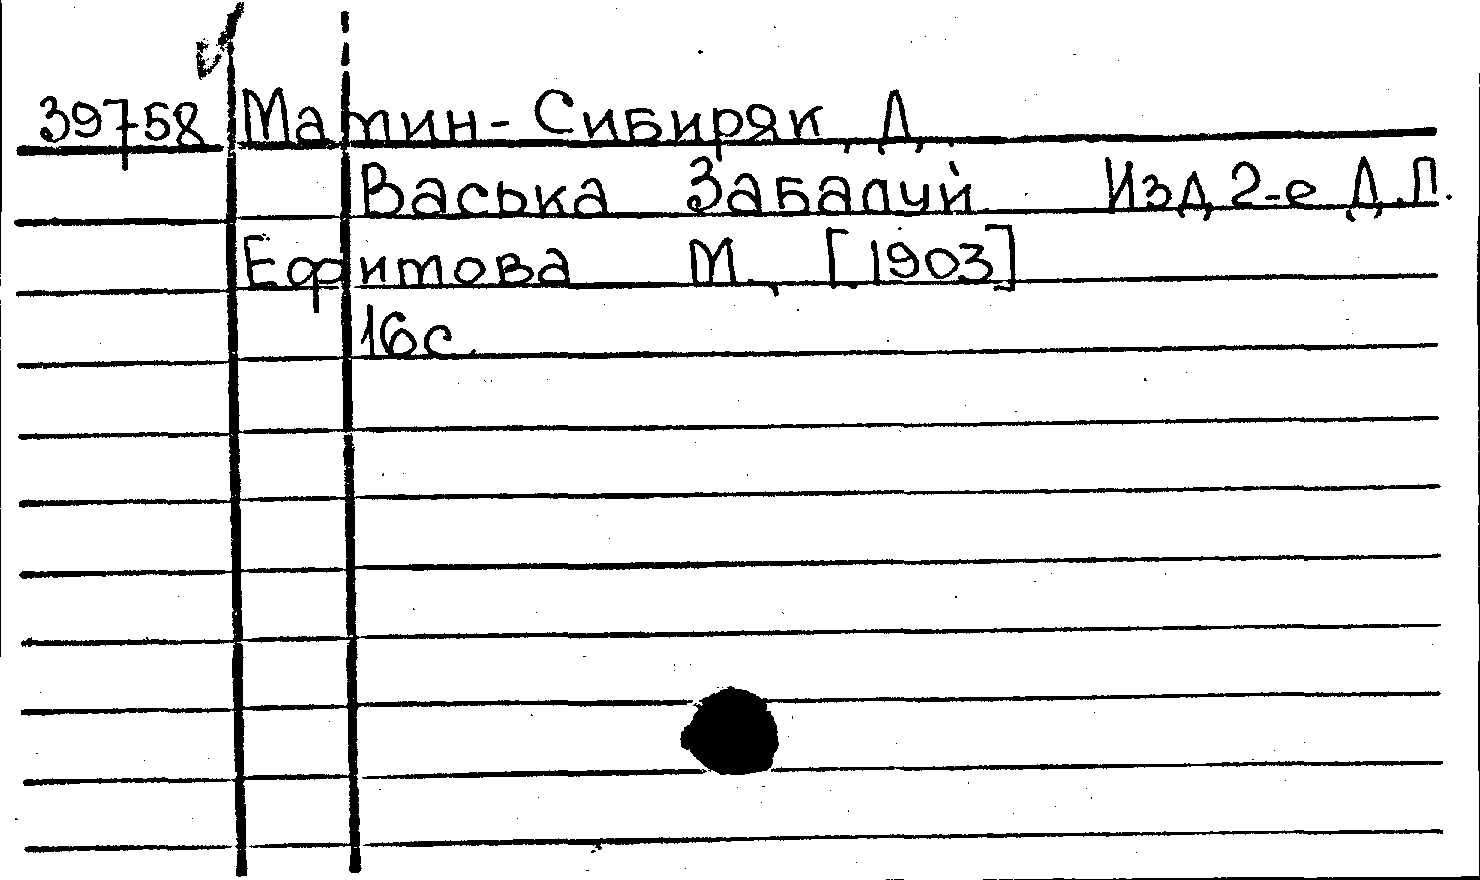 39758 Мамин-Сибиряк, Д.
Васька Забалуй Изд. 2-е Д.П.
Ефимова М., [1903]
16 с.